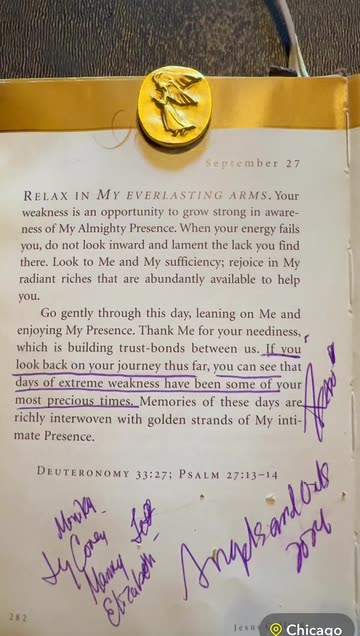 September 27
RELAX IN MY EVERLASTING ARMS. Your
weakness is an opportunity to grow strong in aware-
ness of My Almighty Presence. When your energy fails
you, do not look inward and lament the lack you find
there. Look to Me and My sufficiency; rejoice in My
radiant riches that are abundantly available to help
you.
Go gently through this day, leaning on Me and
enjoying My Presence. Thank Me for your neediness,
which is building trust-bonds between us. If you
look back on your journey thus far, you can see that
days of extreme weakness have been some of your
most precious times. Memories of these days are
richly interwoven with golden strands of My inti-
mate Presence.
DEUTERONOMY 33:27; PSALM 27:13–14
Corey
Elizabeth
Angels and
282
Jesus
Chicago